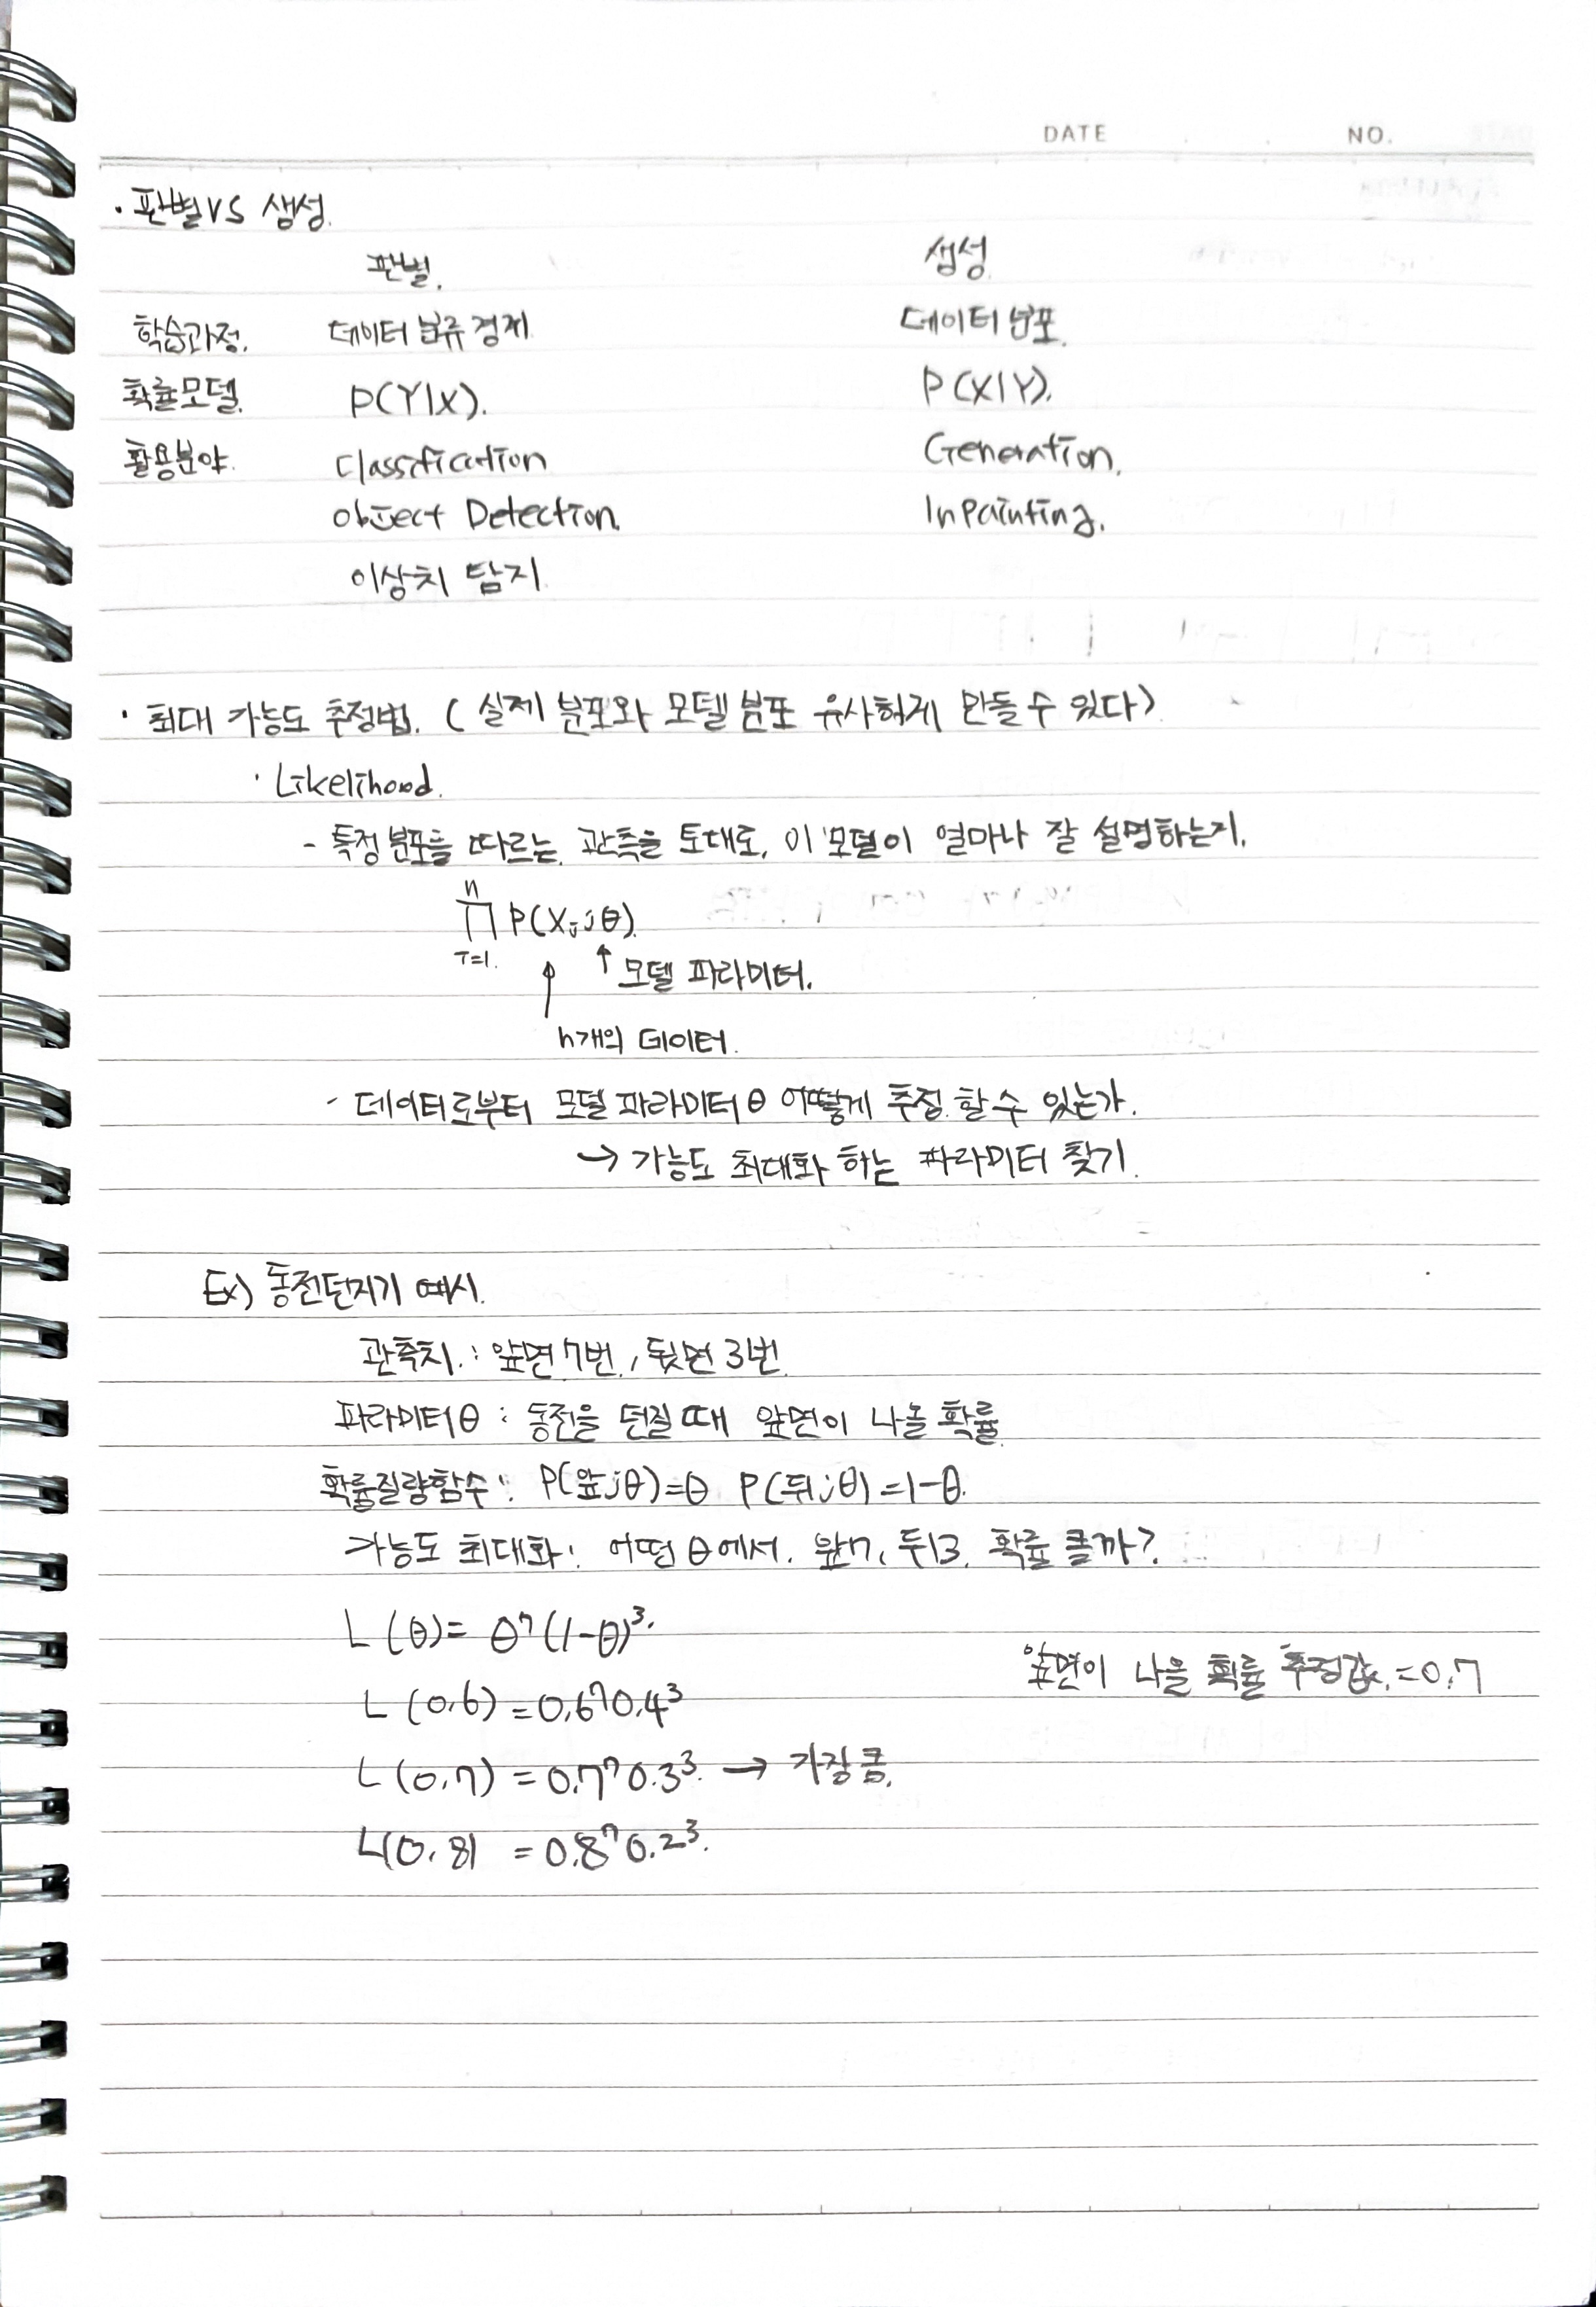 DATE NO.
· 판별 VS 생성.
판별. 생성.
학습과정. 데이터 분류 경계 데이터 분포.
확률모델. P(Y|X). P(X|Y).
활용분야. Classification Generation.
Object Detection. Inpainting.
이상치 탐지
· 최대 가능도 추정법. (실제 분포와 모델 분포 유사하게 만들 수 있다)
· Likelihood.
- 특정 분포를 따르는 관측을 토대로, 이 모델이 얼마나 잘 설명하는지.
n
∏ P(Xᵢ;θ).
i=1.
↑ ↑ 모델 파라미터.
n개의 데이터.
- 데이터로부터 모델 파라미터 θ 어떻게 추정 할 수 있는가.
→ 가능도 최대화 하는 파라미터 찾기.
Ex) 동전던지기 예시.
관측치. : 앞면 7번, 뒷면 3번.
파라미터 θ : 동전을 던질 때 앞면이 나올 확률.
확률질량함수 : P(앞;θ)=θ P(뒤;θ)=1-θ.
가능도 최대화 : 어떤 θ에서. 앞7, 뒤3. 확률 클까?
L(θ)= θ⁷(1-θ)³.
앞면이 나올 확률 추정값.=0.7
L(0.6) = 0.6⁷0.4³
L(0.7) = 0.7⁷0.3³. → 가장 큼.
L(0.8) = 0.8⁷0.2³.